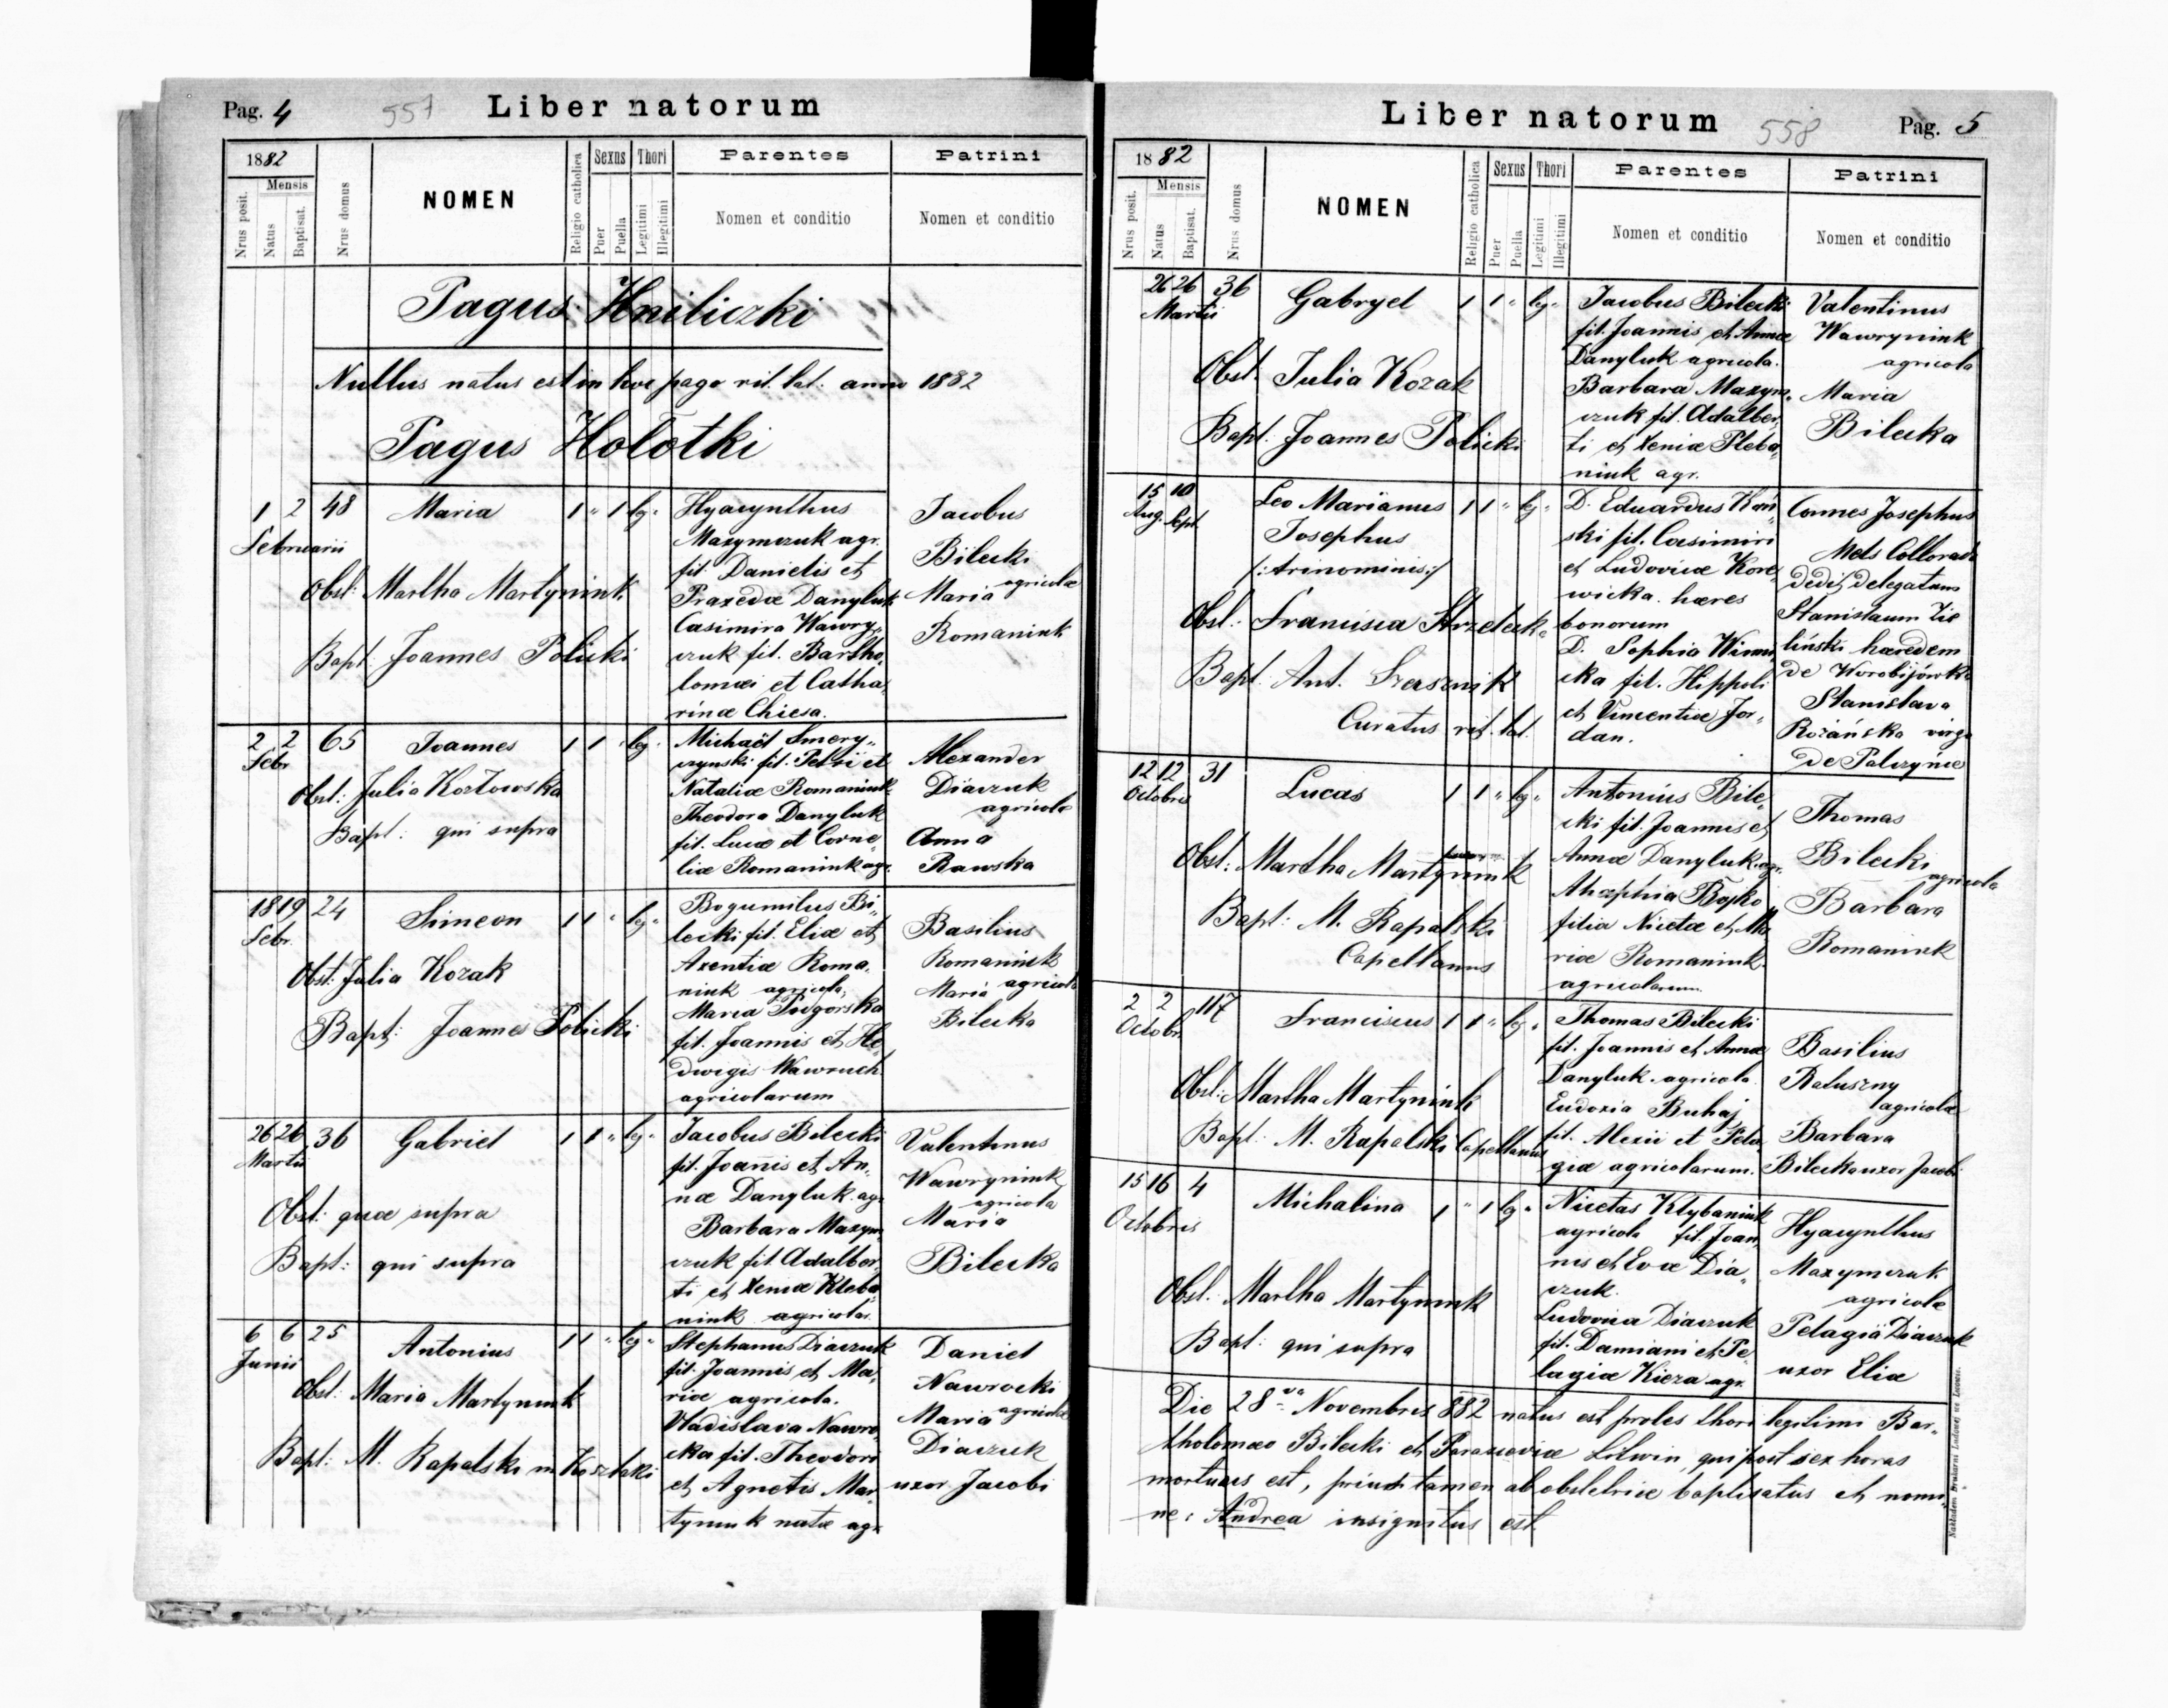 Pag. 4
557
Liber natorum
1882
Mensis
Nrus posit.
Natus
Baptisat.
Nrus domus
NOMEN
Religio catholica
Sexus
Puer
Puella
Thori
Legitimi
Illegitimi
Parentes
Nomen et conditio
Patrini
Nomen et conditio
Pagus Hniliczki
Nullus natus est in hoc pago rit. lat. anno 1882
Pagus Holotki
1 2 48 Maria 1 " 1 leg.
Februarii
Obst: Martha Martyniuk
Bapt: Joannes Policki
Hyacynthus
Maxymczuk agr.
fil. Danielis et
Praxedæ Danyluk
Casimira Wawry„
czuk fil. Bartho„
lomæi et Catha„
rinæ Chiesa.
Jacobus
Bilecki
agricola
Maria
Romaniuk
2 2 65 Joannes 1 1 " leg.
Febr.
Obst: Julia Kozłowska
Bapt: qui supra
Michaël Smery„
czynski fil. Petri et
Nataliæ Romaniuk
Theodora Danyluk
fil. Lucæ et Corne„
liæ Romaniuk agr.
Alexander
Diaczuk
agricola
Anna
Rawska
18 19 24 Simeon 1 1 " leg "
Febr.
Obst: Julia Kozak
Bapt: Joannes Policki
Bogumilus Bi„
lecki fil. Eliæ et
Axentiæ Roma„
niuk agricola,
Maria Podgorska
fil. Joannis et He„
dwigis Wawruch
agricolarum
Basilius
Romaniuk
agricola
Maria
Bilecka
26 26 36 Gabriel 1 1 " leg "
Martii
Obst: quæ supra
Bapt: qui supra
Jacobus Bilecki
fil. Joannis et An„
næ Danyluk. agr.
Barbara Maxym„
czuk fil. Adalber„
ti et Xeniæ Kleba„
niuk agricola.
Valentinus
Wawryniuk
agricola
Maria
Bilecka
6 6 25 Antonius 1 1 " leg "
Junii
Obst: Maria Martyniuk
Bapt: M. Rapalski
Stephanus Diaczuk
fil. Joannis et Ma„
riæ agricola.
Vladislava Nawro„
cka fil. Theodori
et Agnetis Mar„
tyniuk natæ agr.
Daniel
Nawrocki
agricola
Maria
Diaczuk
uxor Jacobi
Liber natorum
558
Pag. 5
1882
Mensis
Nrus posit.
Natus
Baptisat.
Nrus domus
NOMEN
Religio catholica
Sexus
Puer
Puella
Thori
Legitimi
Illegitimi
Parentes
Nomen et conditio
Patrini
Nomen et conditio
26 26 36 Gabryel 1 1 " leg "
Martii
Obst. Julia Kozak
Bapt. Joannes Policki
Jacobus Bilecki
fil. Joannis et Annæ
Danyluk agricola.
Barbara Maxym„
czuk fil. Adalber„
ti et Xeniæ Pleba„
niuk agr.
Valentinus
Wawryniuk
agricola
Maria
Bilecka
15 10 Leo Marianus 1 1 " leg "
Aug. Sept.
Josephus
/:trinominis:/
Obst: Francisca Strzelecka
Bapt: Ant.
Curatus rit. lat.
D. Eduardus
ski fil. Casimiri
et Ludovicæ Kore„
wicka. hæres
bonorum
D. Sophia
cka fil. Hippoli
et Vincentiæ Jor„
dan.
Comes Josephus
Mels Collorado
dedit delegatum
Stanislaum Zie
liński hæredem
de Worobijówka
Stanislava
Rożańska virgo
de Palczyńce
12 12 31 Lucas 1 1 " leg "
Octobris
Obst: Martha Martyniuk
Bapt: M. Rapalski
Capellanus
Antonius Bile„
cki fil. Joannis et
Annæ Danyluk agr.
Bojko
filia Nicetæ et Ma„
riæ Romaniuk.
agricolarum.
Thomas
Bilecki
agricola
Barbara
Romaniuk
2 2 117 Franciscus 1 1 " leg "
Octobr.
Obst: Martha Martyniuk
Bapt: M. Rapalski Capellanus
Thomas Bilecki
fil. Joannis et Annæ
Danyluk. agricola
Eudoxia Buhaj
fil. Alexii et Pela„
giæ agricolarum.
Basilius
Ratuszny
agricola
Barbara
Bilecka uxor Jacobi
15 16 4 Michalina 1 " 1 leg "
Octobris
Obst. Martha Martyniuk
Bapt: qui supra
Nicetas Klybaniuk
agricola fil. Joan„
nis et Evæ Dia„
czuk.
Ludovica Diaczuk
fil. Damiani et Pe„
lagiæ Kiera agr.
Hyacynthus
Maxymczuk
agricola
Pelagia Diaczuk
uxor Eliæ
Die 28va Novembris 882 natus est proles thori legitimi Bar„
tholomæo Bilecki et Parasceviæ Litwin, qui post sex horas
mortuus est, prius tamen ab obstetrice baptisatus et nomi„
ne: Andrea insignitus est.
Nakładem Drukarni Ludowej we Lwowie.